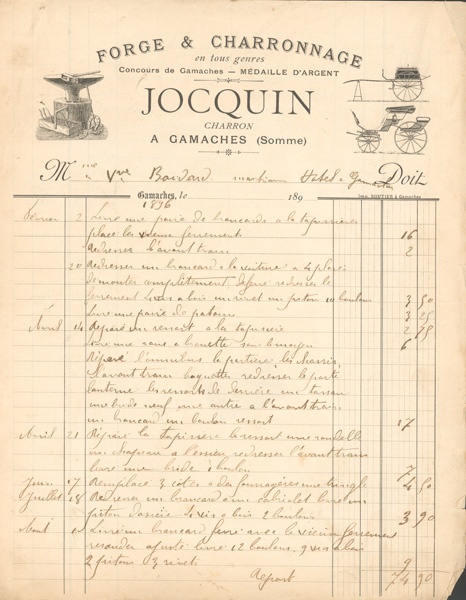 FORGE & CHARRONNAGE
en tous genres
Concours de Gamaches — MÉDAILLE D'ARGENT
JOCQUIN
CHARRON
A GAMACHES (Somme)
M me Vve Hôtel à Gamaches Doit
Gamaches, le 189
Imp. ROUTIER à Gamaches
1896
Février 2 Livré une paire de brancards a la tapissière
place les vieux ferrements 16
Redresser l'avant train 2
20 Redresser un brancard a la voiture a 4 places
demonter complètement redresser le
ferrement Livré a bois un rivet un piton 10 boulons 3 50
Livré une paire de 3 25
Avril 14 Réparé un ressort a la tapissière 2 75
Livré une roue a brouette sans 6
Réparé l'omnibus la portière les chassis
l'avant train baguettes redresser le porte
lanterne les ressorts de derrière un
une bride neuf une autre a l'avant train
un brancard un boulon ressort 17
Avril 21 Réparé la tapissière le ressort une rondelle
un chapeau a l'essieu redresser l'avant train
livré une bride 1 boulon 7
Juin 17 Remplacé 3 cotés a des une tringle 4 50
Juillet 18 Redresser un brancard au cabriolet livré un
piton 4 vis a bois 2 boulons 3 90
Aout Livré un brancard ferré avec le vieux ferrement
ressouder ajusté livré 12 boulons 9 vis a bois
2 pitons 3 rivets 9
Report 74 90